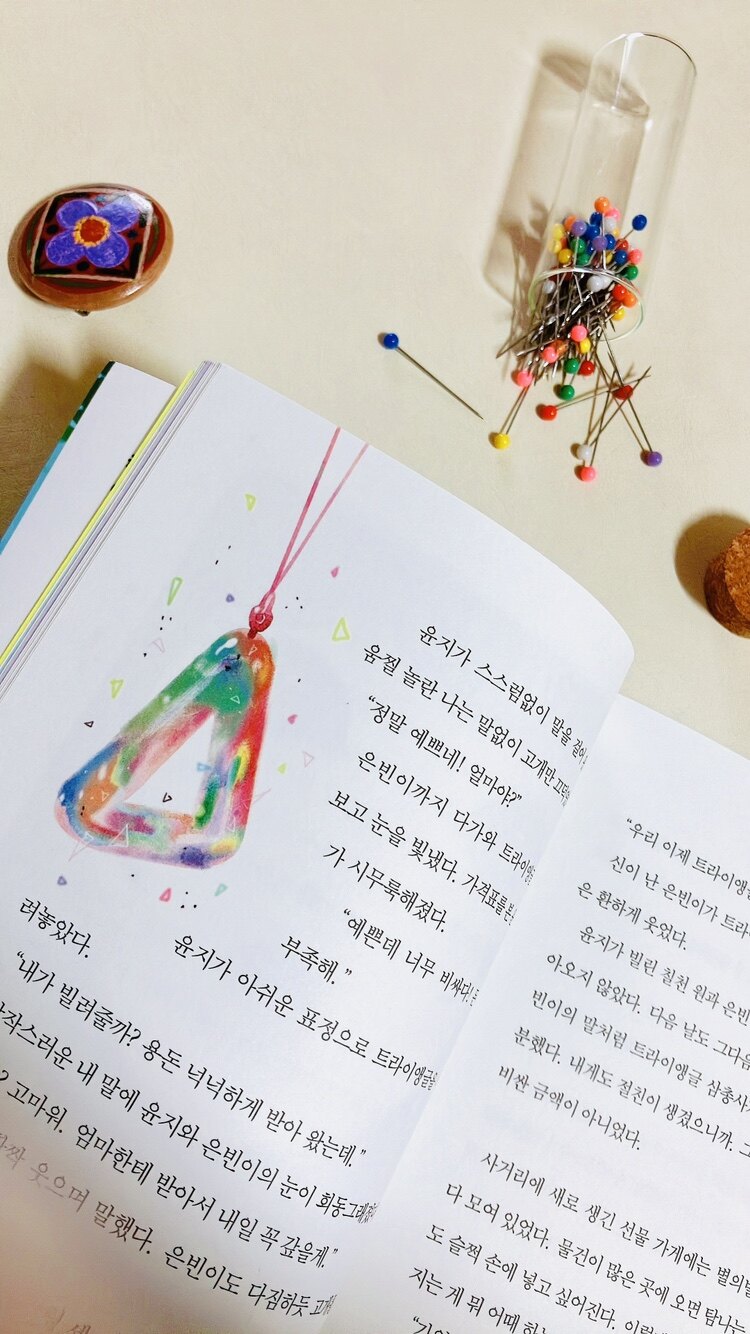 윤지가 스스럼없이 말을 걸어
움찔 놀란 나는 말없이 고개만 끄덕
“정말 예쁘네! 얼마야?”
은빈이까지 다가와 트라이앵
보고 눈을 빛냈다. 가격표를 본
가 시무룩해졌다.
“예쁜데 너무 비싸다!
부족해.”
윤지가 아쉬운 표정으로 트라이앵글을
러놓았다.
“내가 빌려줄까? 용돈 넉넉하게 받아 왔는데.”
작스러운 내 말에 윤지와 은빈이의 눈이 휘둥그레졌
? 고마워. 엄마한테 받아서 내일 꼭 갚을게.”
짝 웃으며 말했다. 은빈이도 다짐하듯 고개
“우리 이제 트라이앵글
신이 난 은빈이가 트라
은 환하게 웃었다.
윤지가 빌린 칠천 원과 은빈
아오지 않았다. 다음 날도 그다음
빈이의 말처럼 트라이앵글 삼총사
분했다. 내게도 절친이 생겼으니까. 그
비싼 금액이 아니었다.
사거리에 새로 생긴 선물 가게에는 별의별
다 모여 있었다. 물건이 많은 곳에 오면 탐나는
도 슬쩍 손에 넣고 싶어진다. 이럴
지는 게 뭐 어때 하